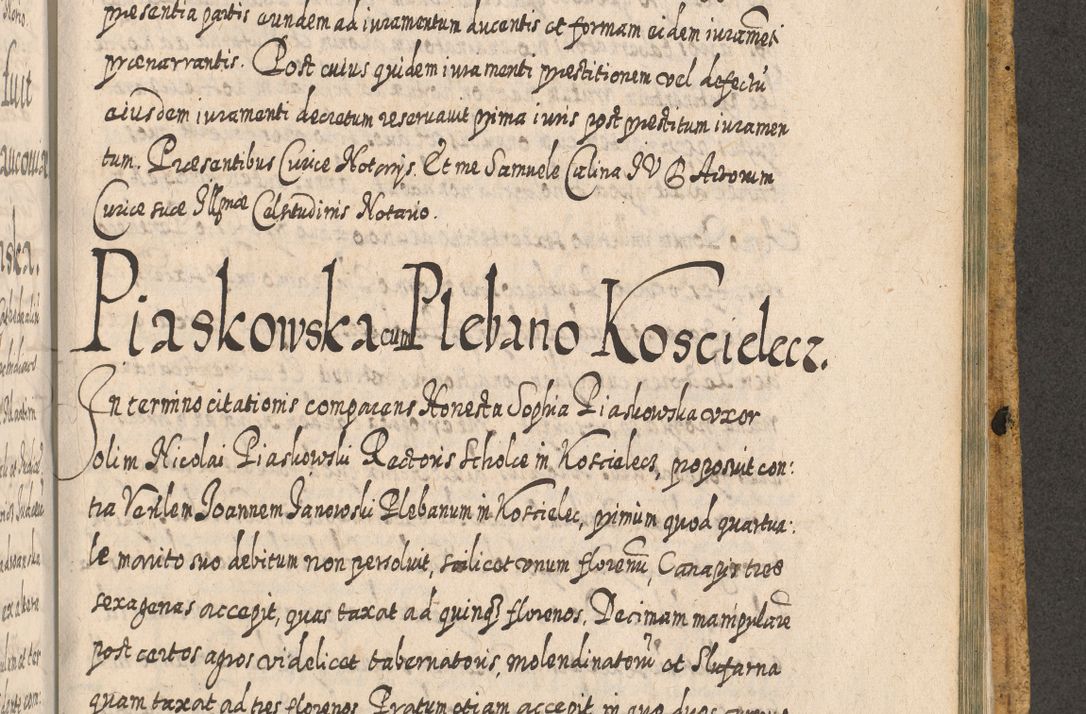 præsentia partis eundem ad iuramentum ducentis et formam eidem iuramẽti
prænarrantis. Post cuius quidem iuramenti præstitionem vel defectũ
eiusdem iuramenti decretum reservavit prima iuris post præstitum iuramen
tum. Præsentibus Curiæ Notarijs. Et me Samuele Calina IV B Actorum
Curiæ suæ Illmæ Celstudinis Notario.
Piaskowska cum Plebano Koscielecz.
In termino citationis comparens Honesta Sophia Piaskowska uxor
olim Nicolai Piaskowski Rectoris Scholæ in Koscielecz, proposuit con:
tra Venlem Joannem Janowski Plebanum in Koscielec, primum quod quartua:
le marito suo debitum non persolvit, scilicet unum florenũ, Canapis tres
sexagenas accepit, quas taxat ad quinq3 florenos. Decimam manipularẽ
post certos agros videlicet tabernatoris, molendinatorũ et Slufarna
quam taxat ad tres florenos. Pratum etiam accepit in quo duos